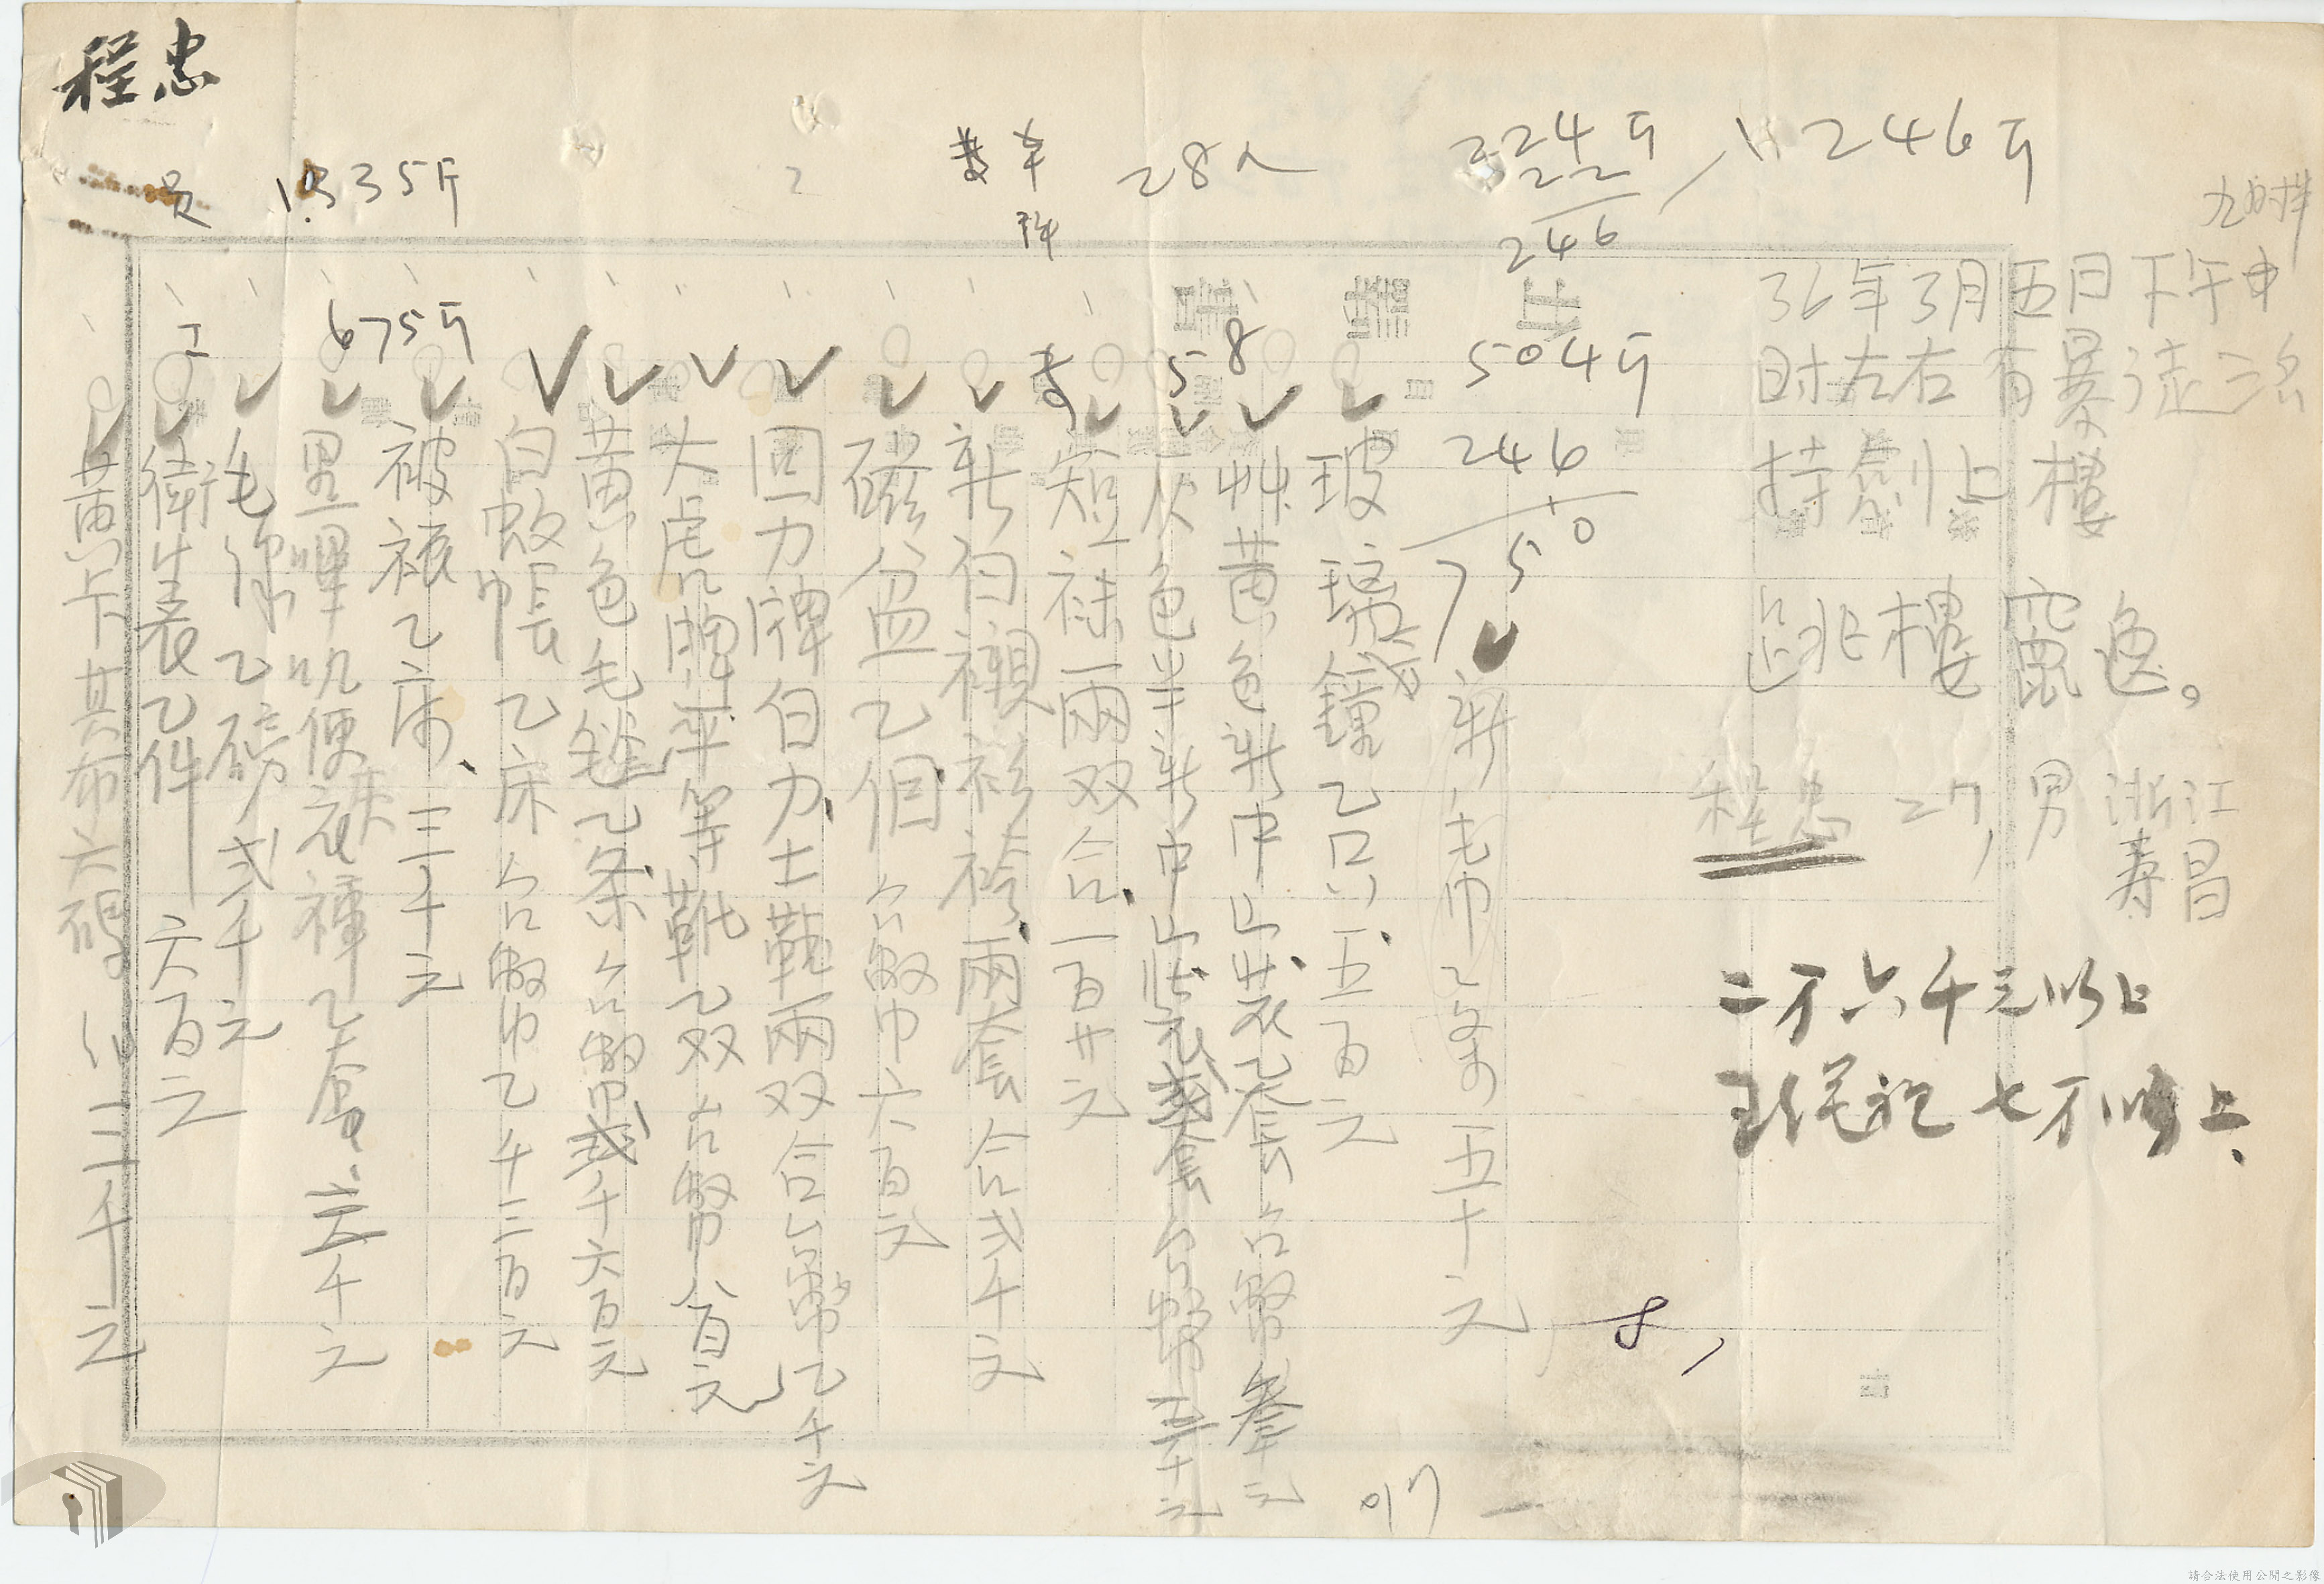 程忠
員 1335斤
28人
224斤
22
246
246斤
504斤
246
750
675斤
58
36年3月五日下午
时左右有暴徒
持劍上樓
跳樓竄逸。
程忠 27, 男 浙江
寿昌
二万六千元以上
七万以上
新毛巾乙条五十元
玻璃鐘乙口五百元
草黄色新中山装乙套台幣叁千元
灰色半新中山装弍套台幣
短袜兩双合一百廿元
新白襯衫袴兩套合弍千元
磁盆乙個台幣六百元
回力牌白力士鞋兩双合台幣乙千元
大虎牌平等靴乙双台幣八百元
黄色毛毯乙条台幣弍千六百元
白蚊帳乙床台幣乙千三百元
被褥乙床、三千元
黑嗶嘰便衣褲乙套
毛線乙磅弍千元
衛生衣乙件 六百元
黄卡其布六碼 二千元
請合法使用公開之影像